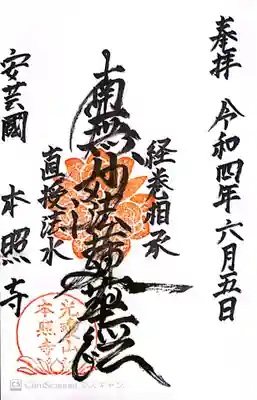 奉拝
令和四年六月五日
経巻相承
南無妙法蓮華経
直授法水
安芸國
本照寺
本照寺
CS CamScanner でスキャン